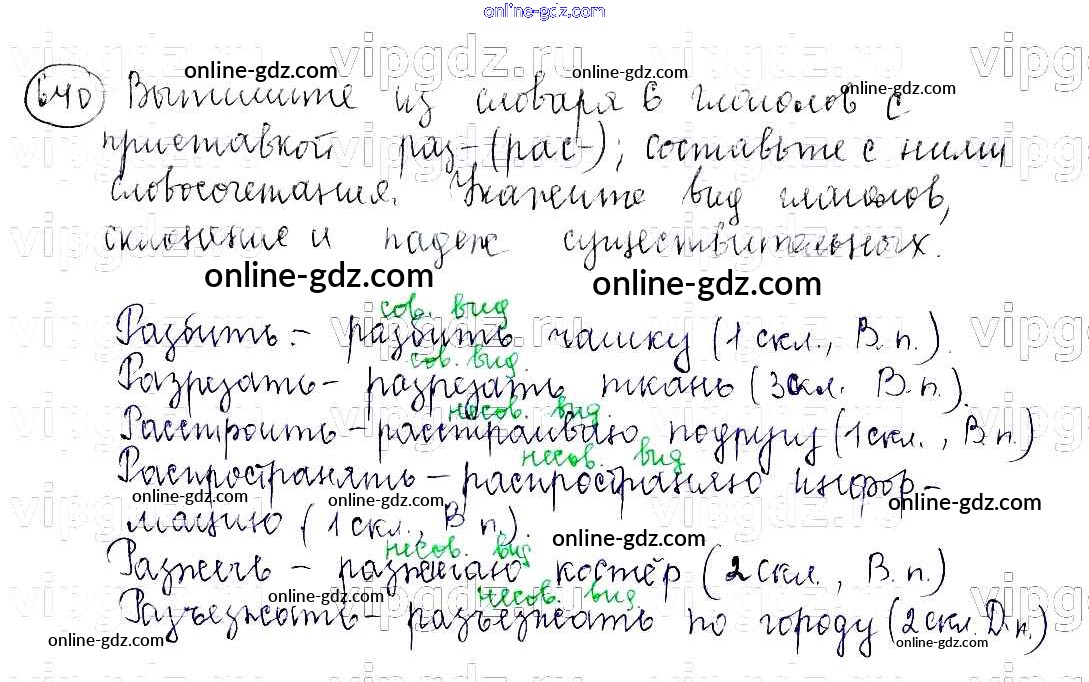 online-gdz.com
640 Выпишите из словаря 6 глаголов с
online-gdz.com online-gdz.com
приставкой раз-(рас-); составьте с ними
словосочетания. Укажите вид глаголов,
склонение и падеж существительных.
online-gdz.com online-gdz.com
сов. вид
Разбить. – разбить чашку (1 скл., В.п.).
сов. вид.
Разрезать – разрезать ткань (3 скл. В.п.).
несов. вид
Расстроить – расстраиваю подругу (1 скл., В.п.)
несов. вид
Распространять – распространяю инфор-
online-gdz.com online-gdz.com
мацию (1 скл., В п.).
online-gdz.com
несов. вид
Разжечь – разжигаю костёр (2 скл., В.п.)
online-gdz.com online-gdz.com
несов. вид.
Разъезжать – разъезжать по городу (2 скл. Д.п.)
online-gdz.com online-gdz.com
vipgdz.ru vipgdz.ru vipgdz.ru